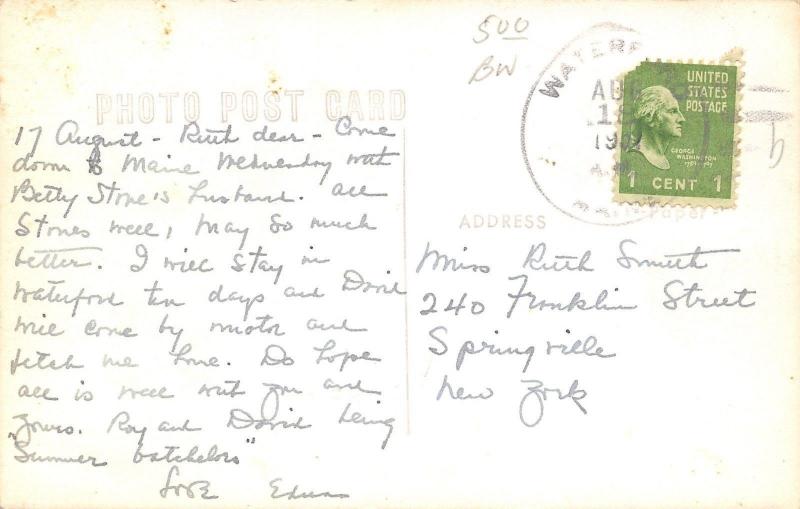 500
BW
PHOTO POST CARD
17 August - Ruth dear - Come
down to Maine Wednesday with
Betty Stone's husband. All
Stones well, May so much
better. I will stay in
Waterford ten days and David
will come by motor and
fetch me home. Do hope
all is well with you and
yours. Roy and David being
"Summer batchelors"
Love
WATERF
AUG
18
A.M.
UNITED
STATES
POSTAGE
GEORGE
WASHINGTON
1789-1797
1 CENT 1
ADDRESS
Paper
Miss Ruth Smith
240 Franklin Street
Springville
New York